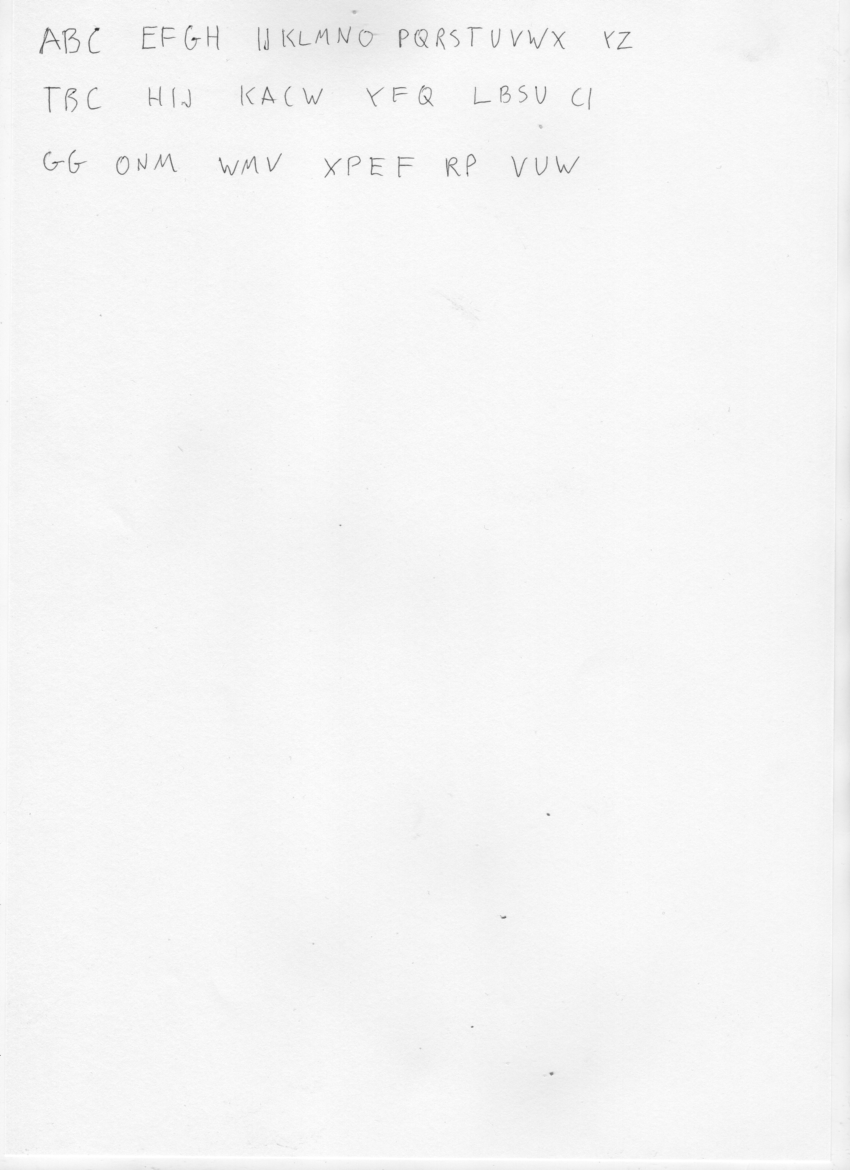 ABC EFGH IJKLMNO PQRSTUVWX YZ
TBC HIJ KACW YFQ LBSU CI
GG ONM WMV XPEF RP VUW